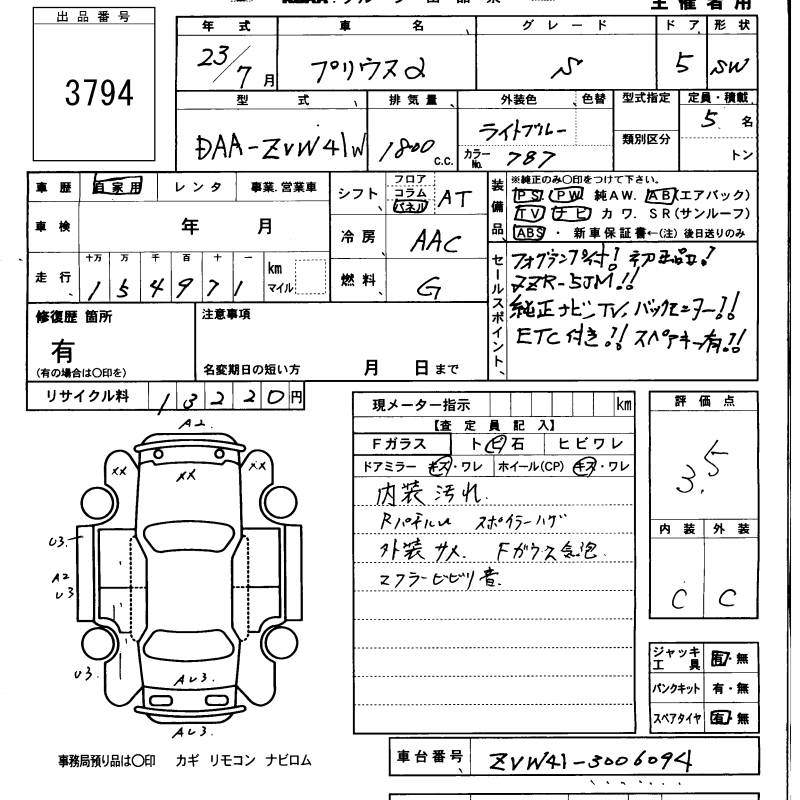 出品番号
3794
年式 車名 グレード ドア 形状
23/7月 プリウスα S 5 SW
型式 排気量 外装色 色替 型式指定 定員・積載
DAA-ZVW41W 1800 C.C. ライトブルー 5名
カラーNo. 787 類別区分 トン
車歴 自家用 レンタ 事業.営業車
車検 年 月
走行 十万 万 千 百 十 一
154971 km マイル
シフト フロア コラム パネル AT
冷房 AAC
燃料 G
装備品
※純正のみ〇印をつけて下さい。
PS PW 純AW. AB(エアバック)
TV ナビ カワ. SR(サンルーフ)
ABS ・ 新車保証書←(注)後日送りのみ
セールスポイント
フォグランプ付! 初出品!
ZZR-5JM!!
純正ナビ TV. バックモニター!!
ETC付き!! スペアキー有!!
修復歴 箇所
有
(有の場合は〇印を)
注意事項
名変期日の短い方 月 日まで
リサイクル料 13220円
現メーター指示 km
【査定員記入】
Fガラス トビ石 ヒビワレ
ドアミラー キズ・ワレ ホイール(CP) キズ・ワレ
内装汚れ.
スポイラーハゲ
外装サメ. Fガラス気泡.
マフラービビリ音.
評価点
3.5
内装 外装
C C
ジャッキ工具 有・無
パンクキット 有・無
スペアタイヤ 有・無
A2.
XX XX XX
U3.
A2
U3
U3.
AU3.
AU3.
事務局預り品は〇印 カギ リモコン ナビロム
車台番号 ZVW41-3006094